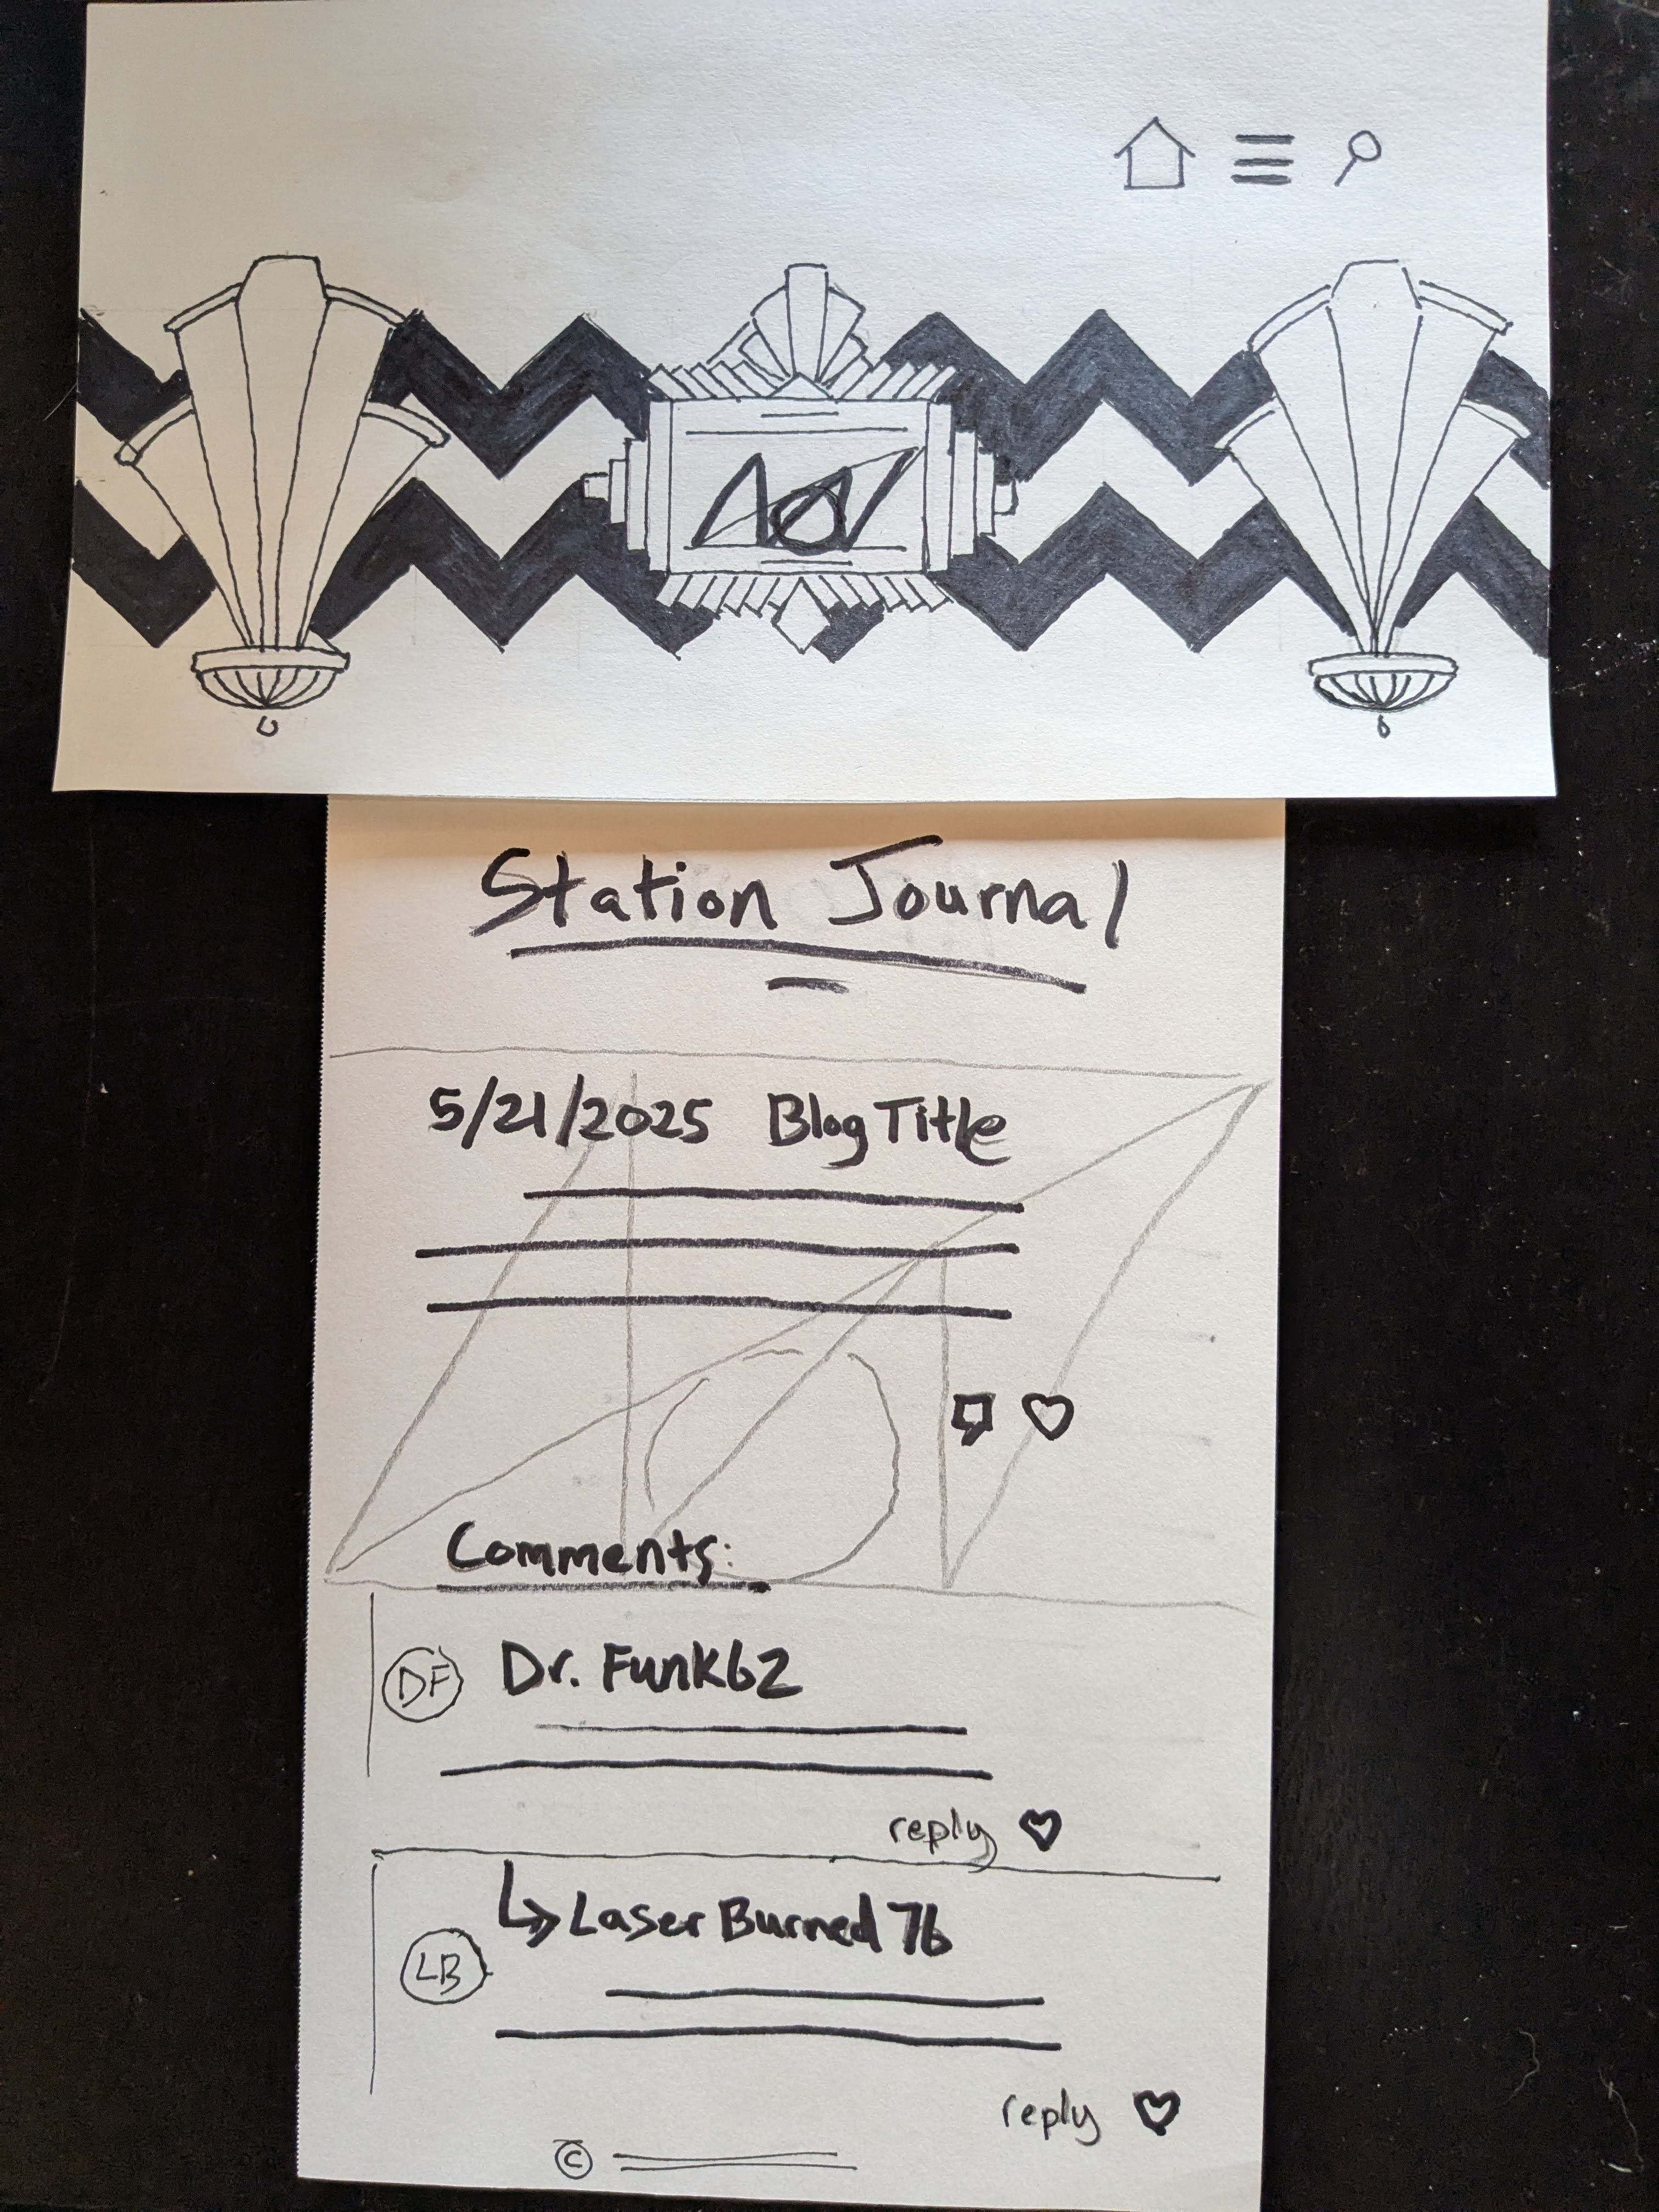 AOV
Station Journal
5/21/2025 Blog Title
Comments:
DF Dr. Funk62
reply
Laser Burned 76
LB
reply
©